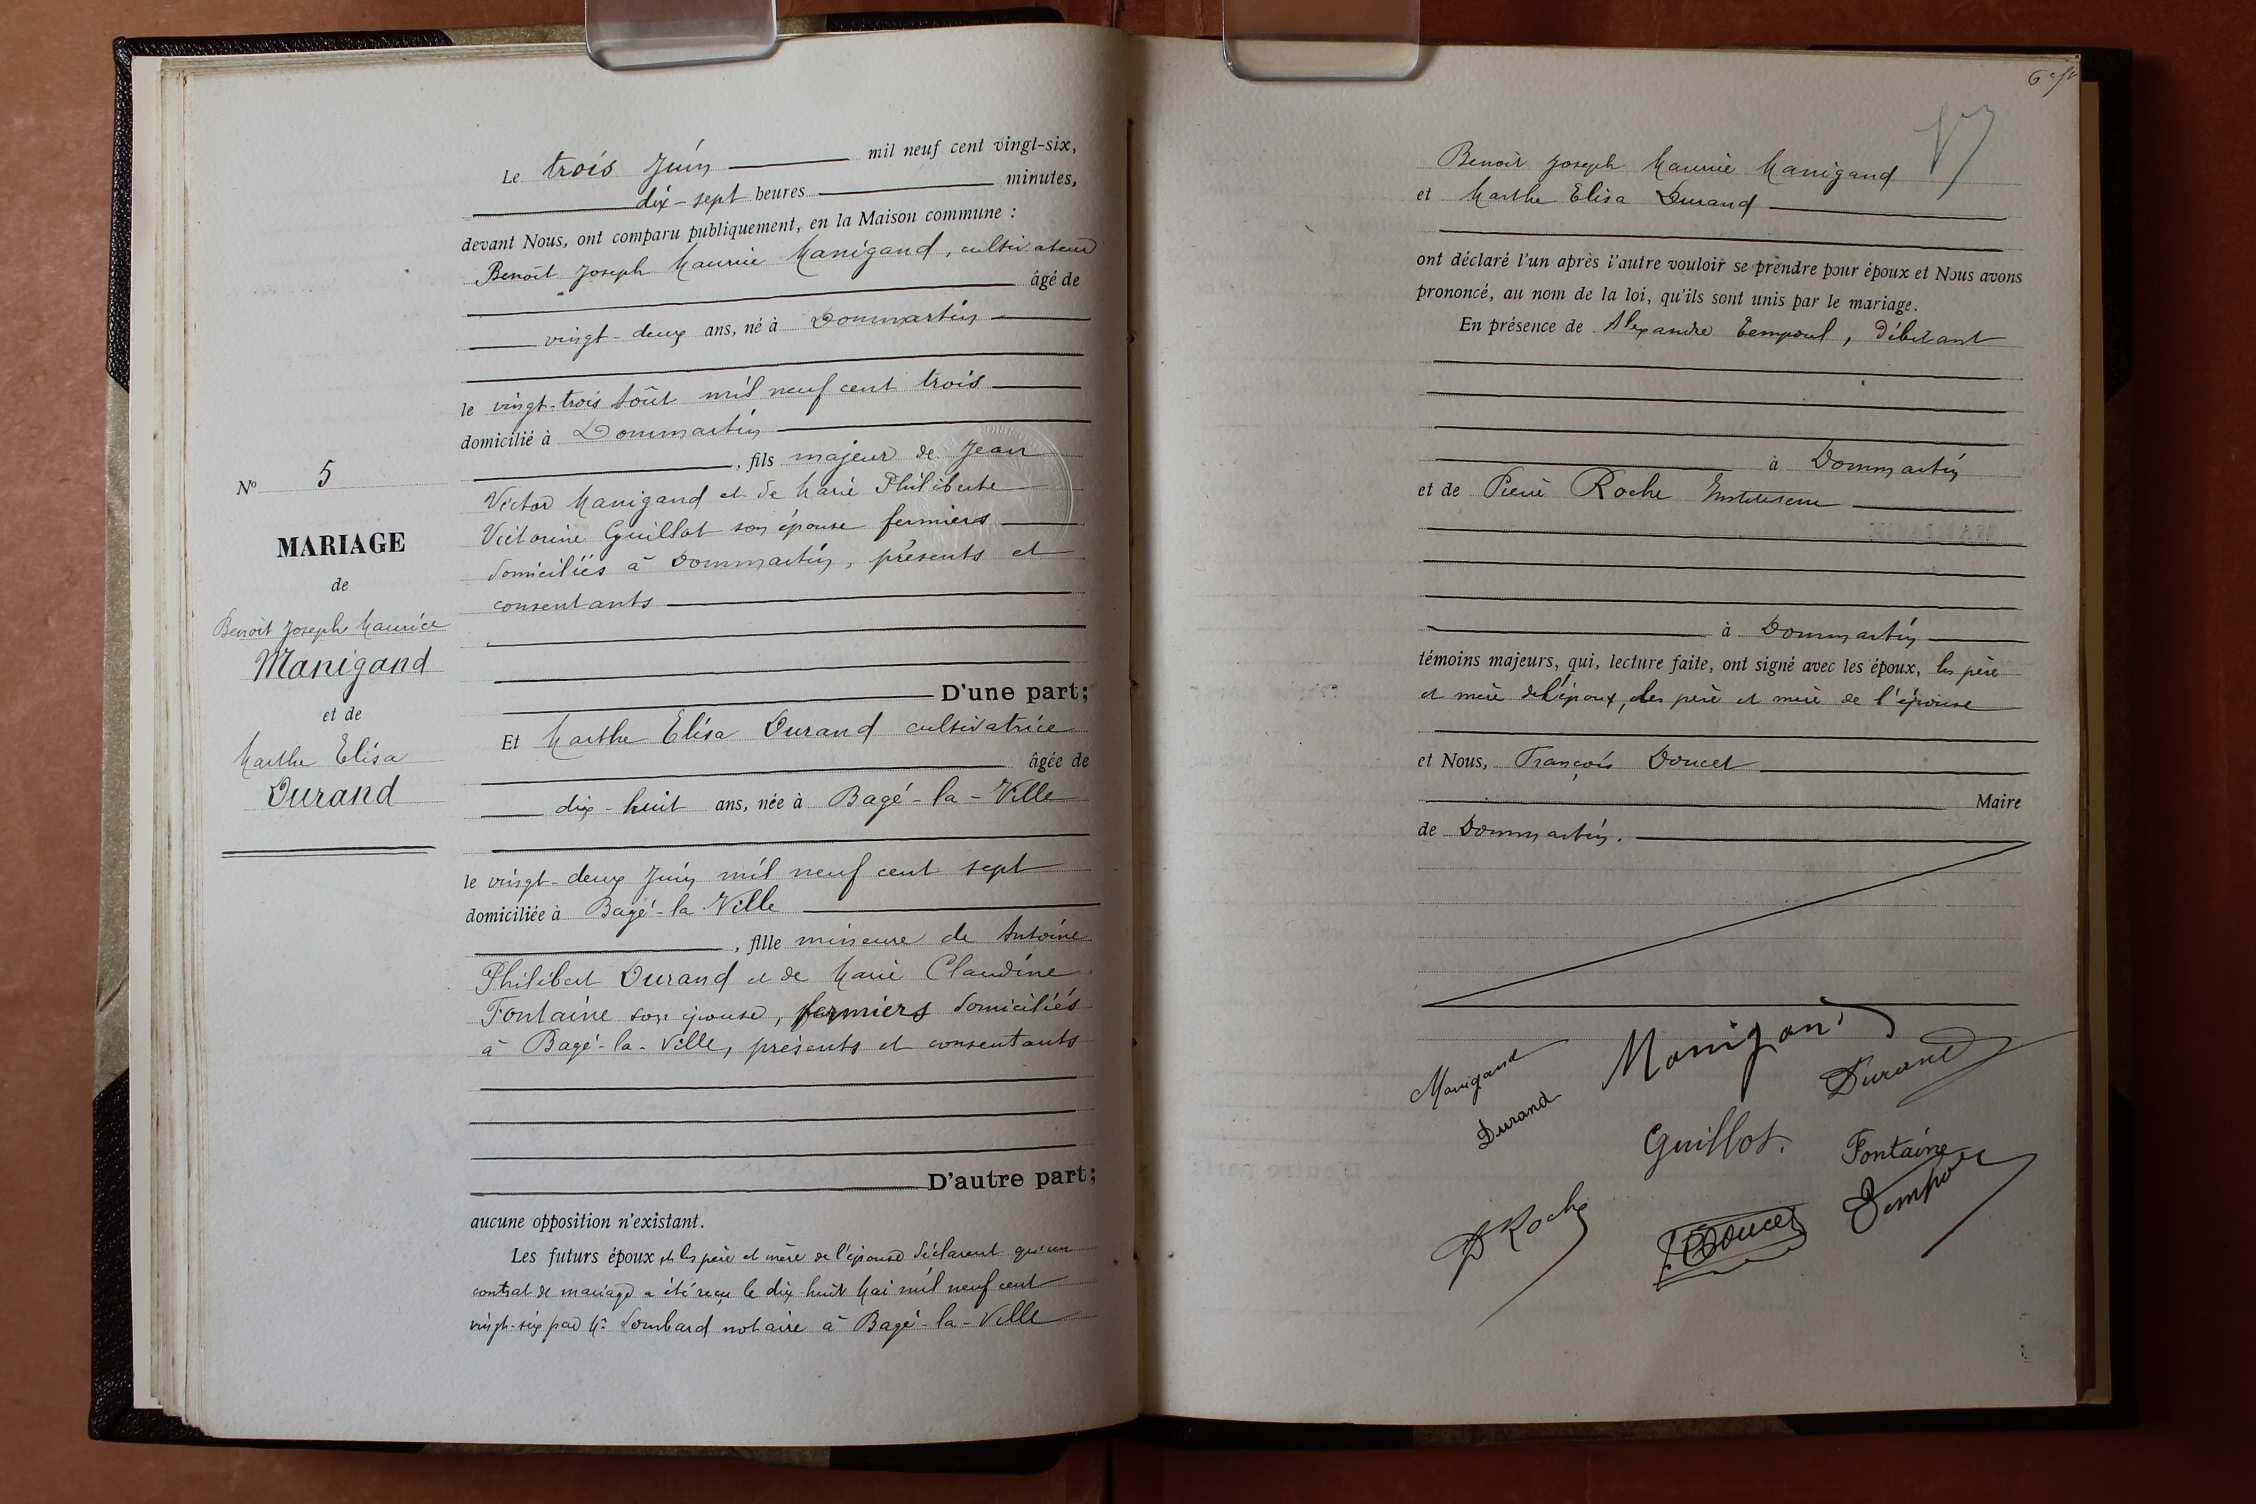 Le trois Juin mil neuf cent vingt-six,
dix-sept heures minutes,
devant Nous, ont comparu publiquement, en la Maison commune :
Benoit Joseph Maurice Manigand, cultivateur
âgé de
vingt-deux ans, né à Dommartin
le vingt-trois Août mil neuf cent trois
domicilié à Dommartin
, fils majeur de Jean
Victor Manigand et de Marie Philiberte
Victorine Guillot son épouse fermiers
domiciliés à Dommartin, présents et
consentants
D'une part;
Et Marthe Elisa Durand cultivatrice
âgée de
dix-huit ans, née à Bagé-la-Ville
le vingt-deux Juin mil neuf cent sept
domiciliée à Bagé-la-Ville
, fille mineure de Antoine
Philibert Durand et de Marie Claudine
Fontaine son épouse, fermiers domiciliés
à Bagé-la-Ville, présents et consentants
D'autre part;
aucune opposition n'existant.
Les futurs époux et les père et mère de l'épouse déclarent qu'un
contrat de mariage a été reçu le dix huit Mai mil neuf cent
vingt-six par Me Lombard notaire à Bagé-la-Ville
No 5
MARIAGE
de
Benoit Joseph Maurice
Manigand
et de
Marthe Elisa
Durand
Benoit Joseph Maurice Manigand
et Marthe Elisa Durand
ont déclaré l'un après l'autre vouloir se prendre pour époux et Nous avons
prononcé, au nom de la loi, qu'ils sont unis par le mariage.
En présence de Alexandre Temporel, débitant
à Dommartin
et de Pierre Roche Instituteur
à Dommartin
témoins majeurs, qui, lecture faite, ont signé avec les époux, les père
et mère de l'époux, les père et mère de l'épouse
et Nous, François Doucet
Maire
de Dommartin.
Manigand
Manigand
Durand
Durand
Guillot.
Fontaine
P Roche
F. Doucet